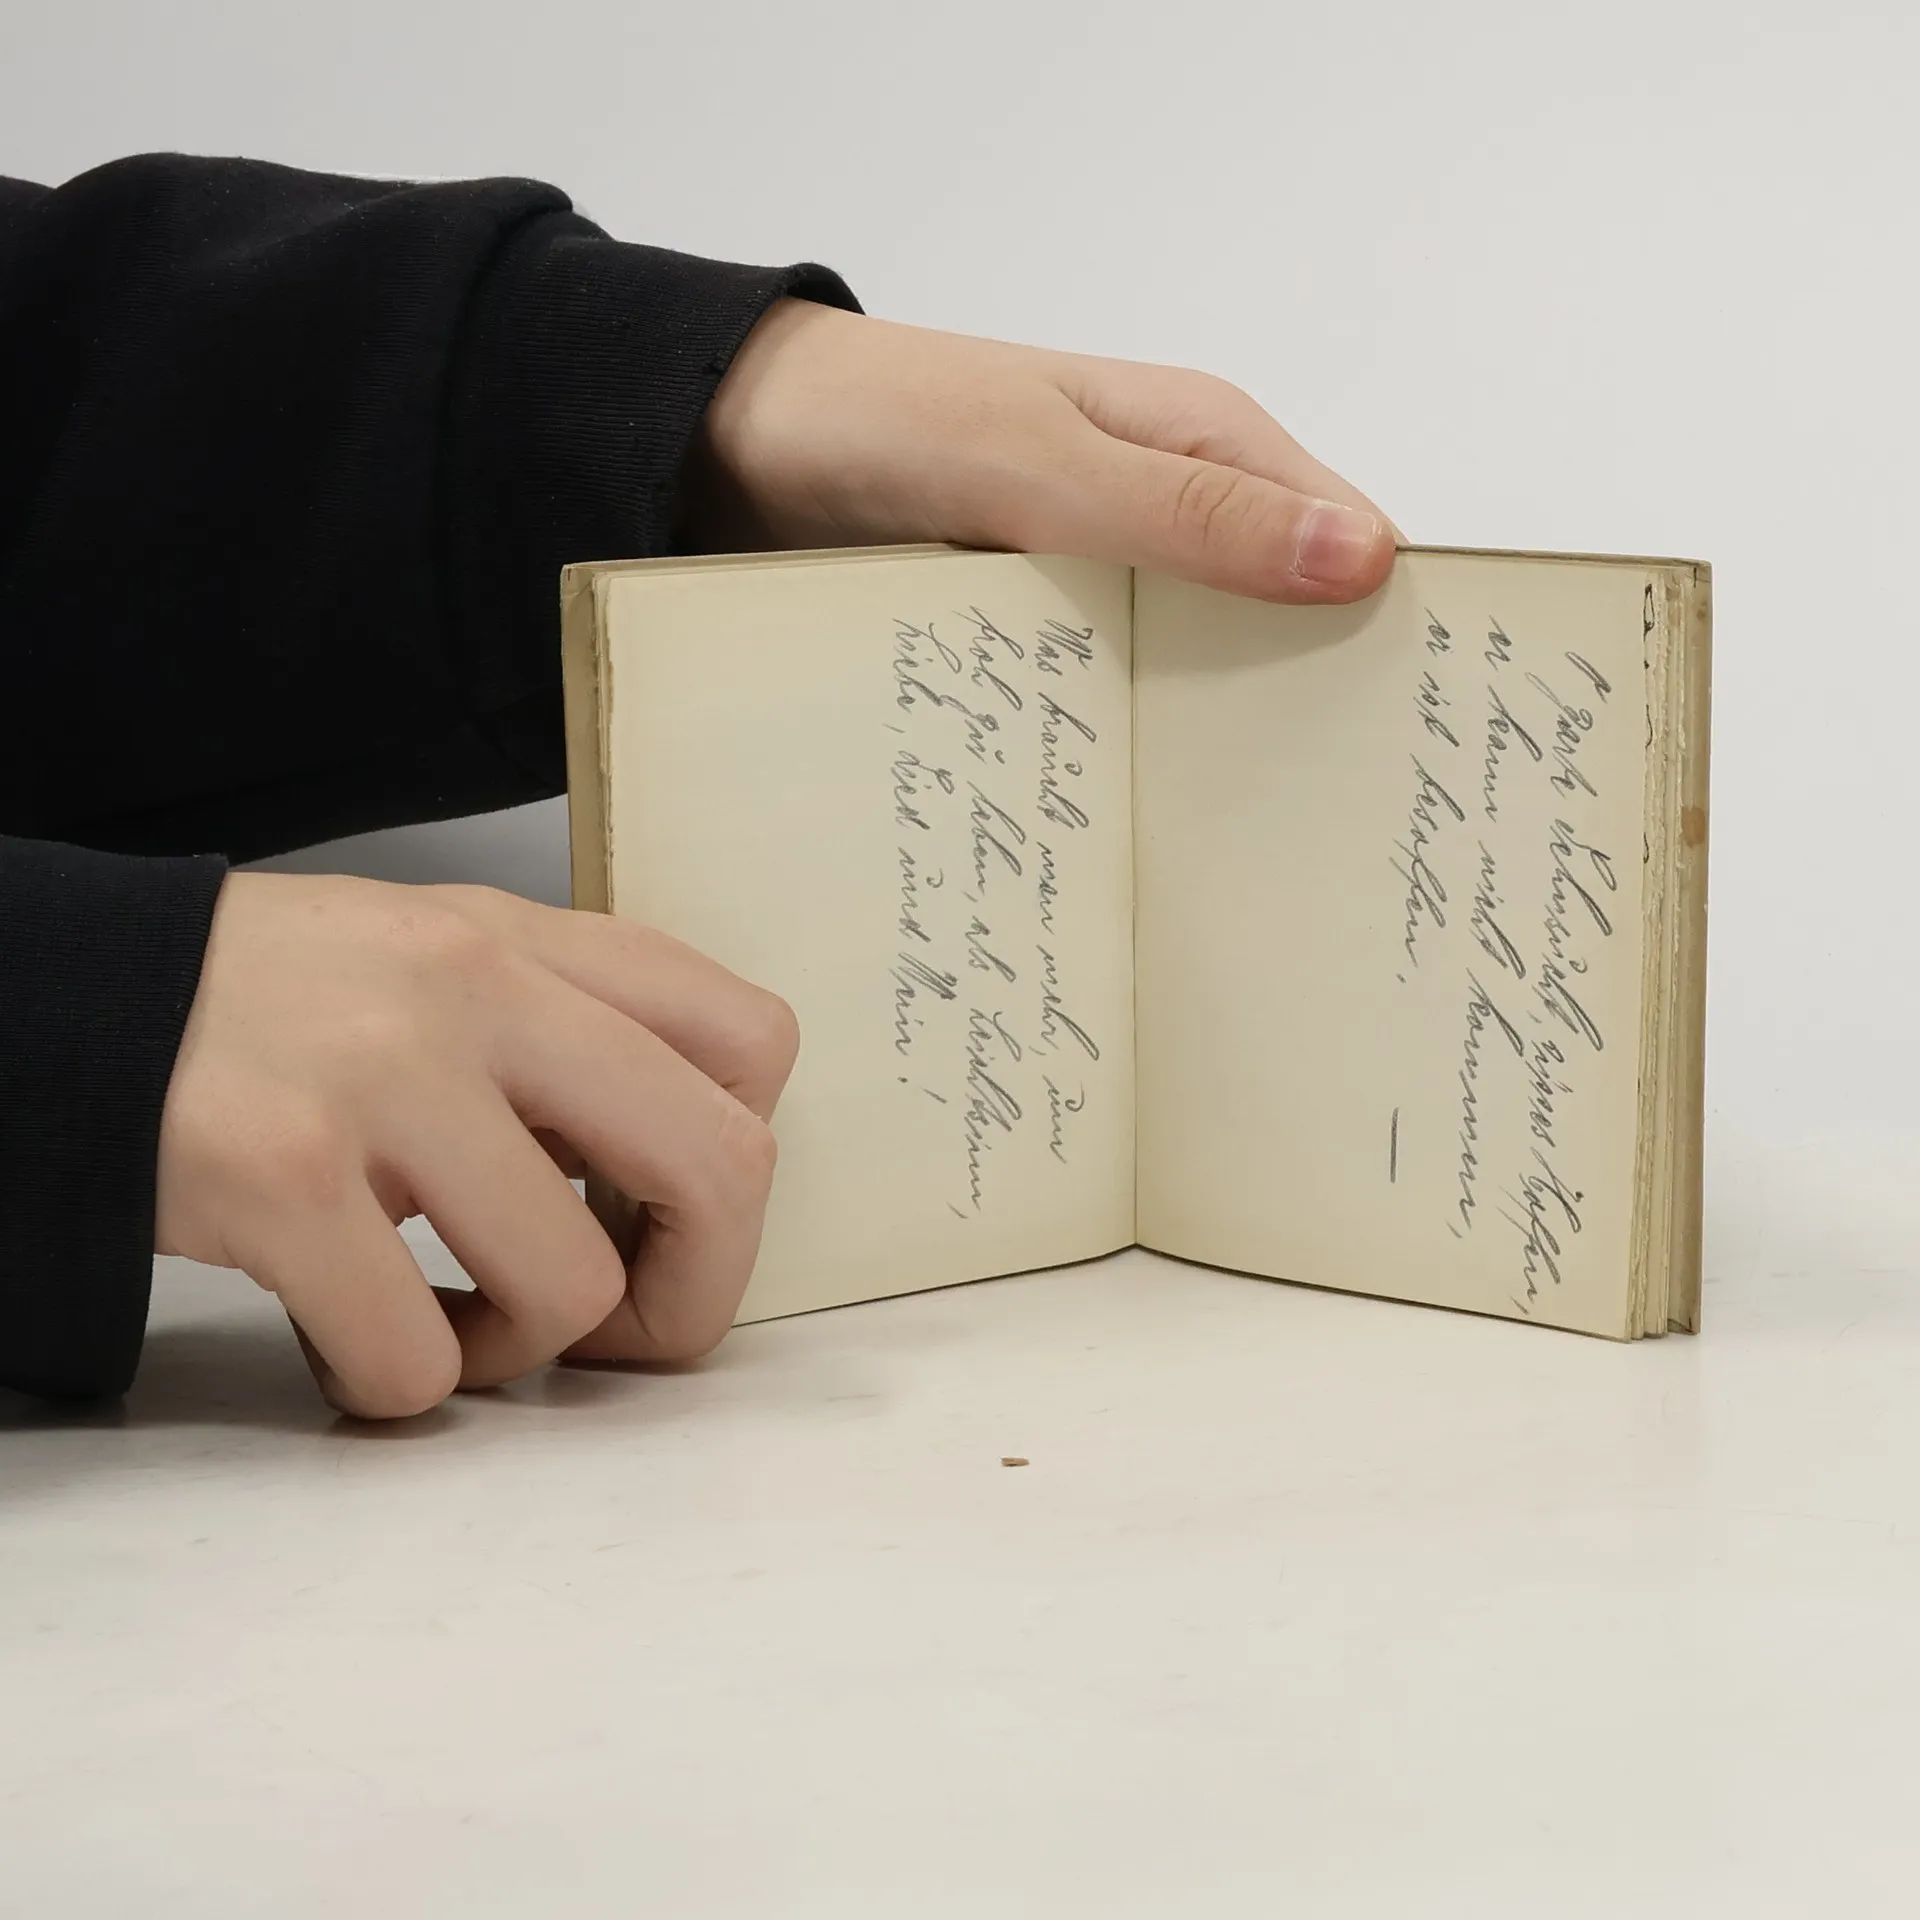 O zarte Sehnsucht, süsses Hoffen,
er kann nicht kommen,
er ist besoffen.
Was braucht man mehr, um
froh zu leben, als Leichtsinn,
Liebe, Lied und Wein!